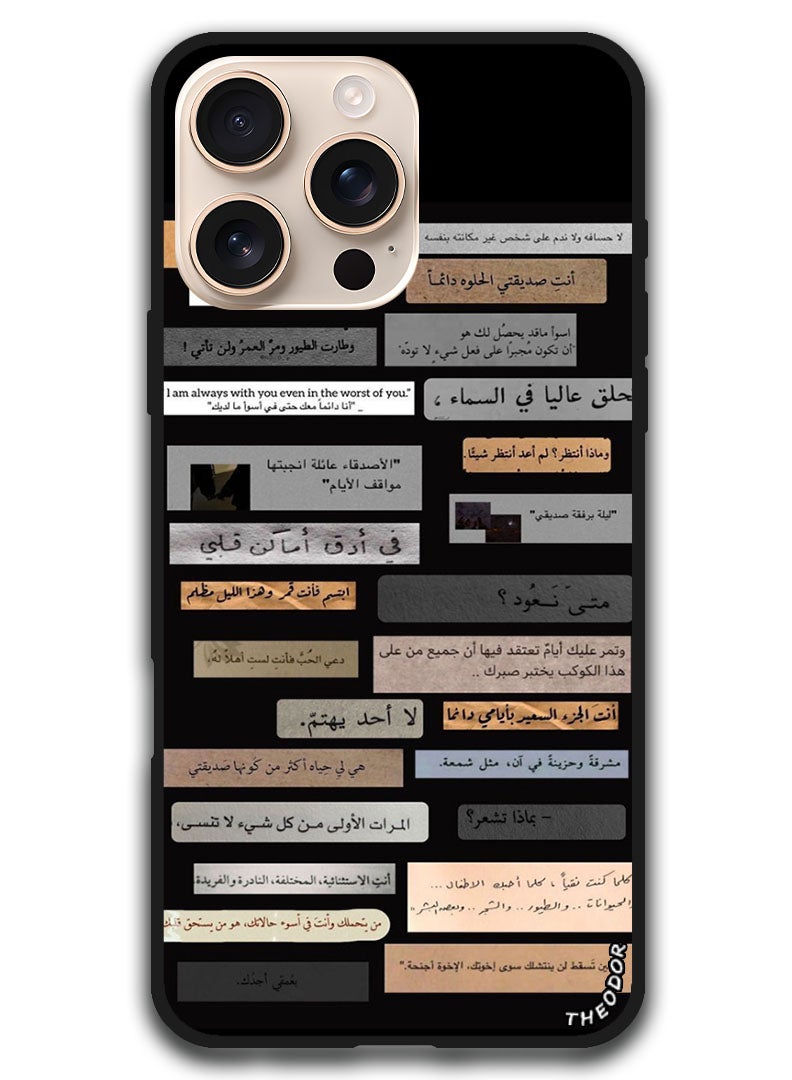 لا حسافه ولا ندم على شخص غير مكانته بنفسه
أنتِ صديقتي الحلوه دائمـاً
وطارت الطيور ومرَّ العمرُ ولن تأتي !
اسوأ ماقد يحصُل لك هو
"أن تكون مُجبرًا على فعل شيءٍ لا تودّه"
I am always with you even in the worst of you."
_ "أنا دائماً معك حتى في أسوأ ما لديك"
حلق عاليا في السماء ،
وماذا أنتظر؟ لم أعد أنتظر شيئًا.
"الأصدقاء عائلة انجبتها
مواقف الأيام"
"ليلة برفقة صديقي"
في أدق أماكن قلبي
ابتسم فأنت قمر وهذا الليل مظلم
متىّ نَـعُود ؟
دعي الحُبَّ فأنتِ لستِ أهلاً لهُ.
وتمر عليك أيامٌ تعتقد فيها أن جميع من على
هذا الكوكب يختبر صبرك ..
لا أحد يهتمّ.
أنتَ الجزء السعيد بأيامي دائما
هي لي حِياه أكثر من كَونها صَديقتي
مشرقةٌ وحزينةٌ في آن، مثل شمعة.
المرات الأولى مـن كل شـيء لا تنسـى،
– بماذا تشعر؟
أنتِ الاستثنائية، المختلفة، النادرة والفريدة
كلما كنت نقياً ، كلما أحببت الاطفال ...
والحيوانات .. والطيور .. والشجر .. وبعض البشر"
من يتحملك وأنتَ في أسوء حالاتك، هو من يستحق قلبك
تَسقط لن ينتشلك سوى إخوتك، الإخوة أجنحة."
بعُمقي أجدُك.
THEODOR